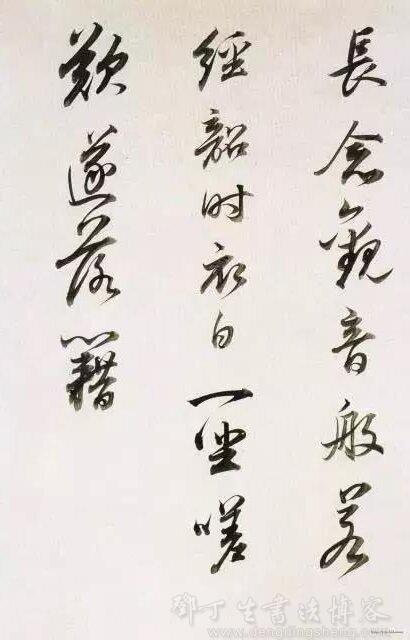 長念觀音般若
經韶时衣白一坐嗟
歎遂落籍
鄧丁生書法博客
www.dengdingsheng.com